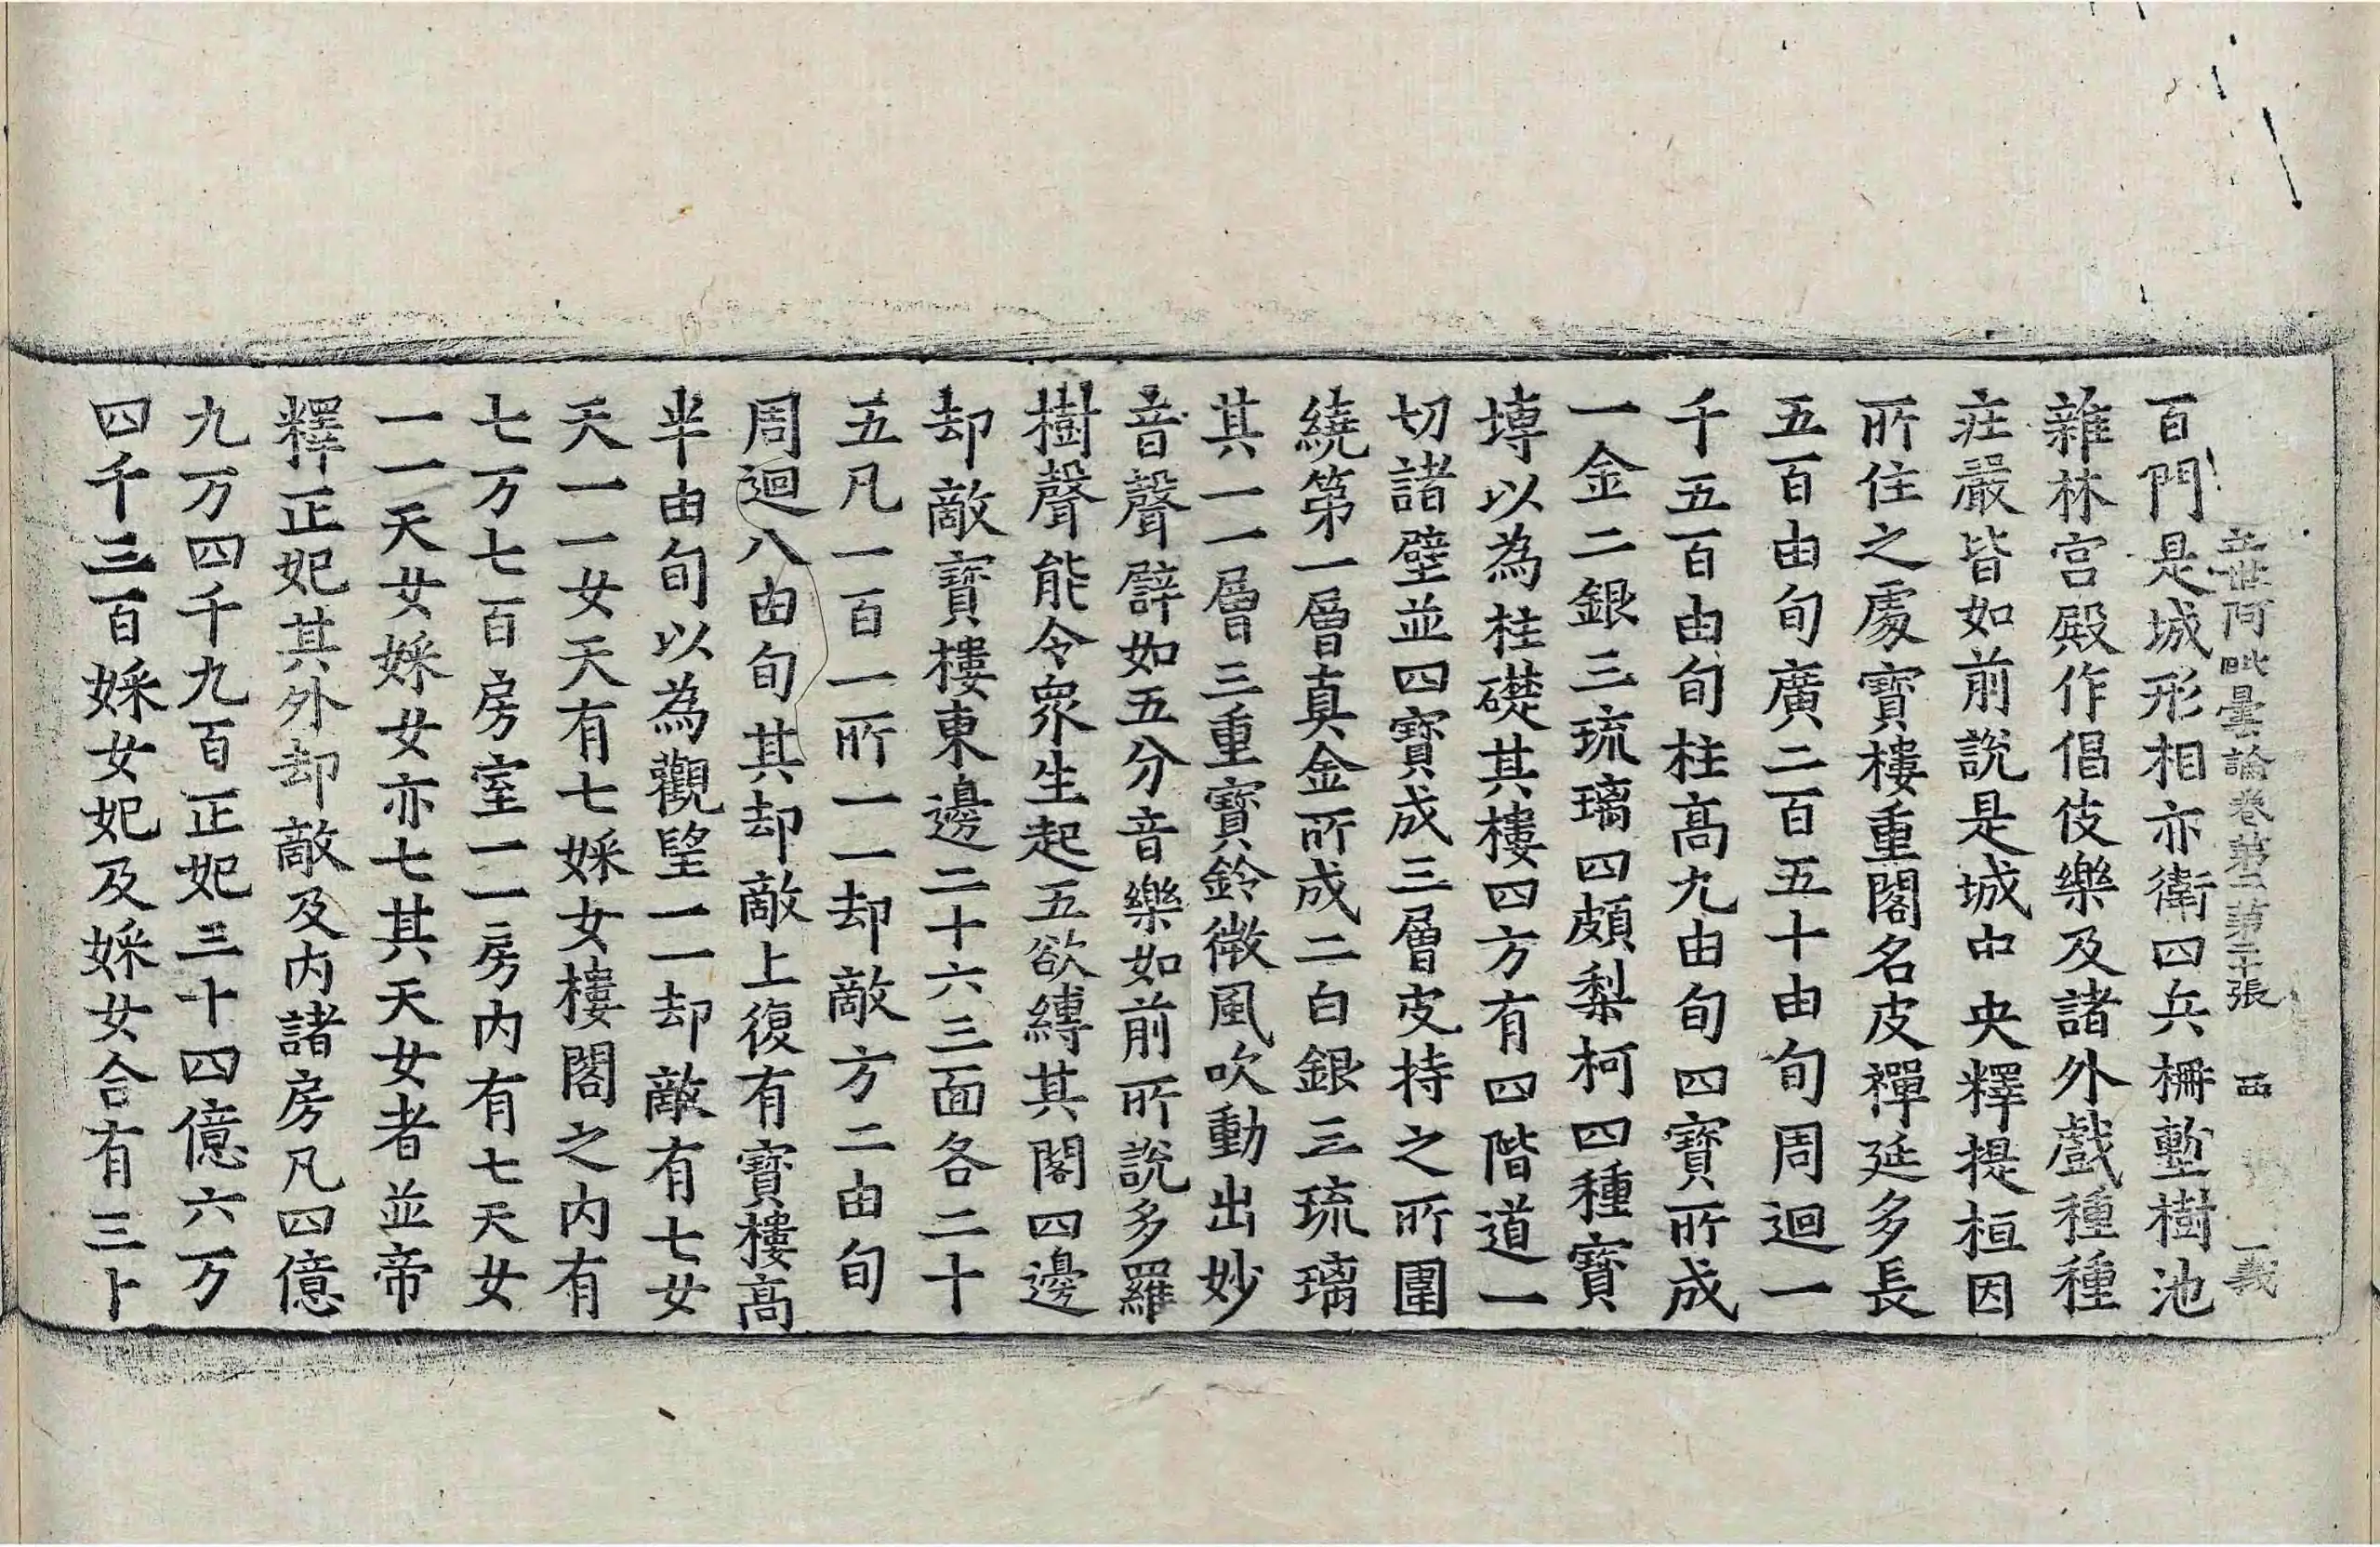 立世阿毗曇論卷第二第三張 西 義
百門是城形相亦衛四兵柵塹樹池
雜林宮殿作倡伎樂及諸外戲種種
莊嚴皆如前說是城中央釋提桓因
所住之處寶樓重閣名皮禪延多長
五百由旬廣二百五十由旬周迴一
千五百由旬柱高九由旬四寶所成
一金二銀三琉璃四頗梨柯四種寶
塼以為柱礎其樓四方有四階道一
切諸壁並四寶成三層皮持之所圍
繞第一層真金所成二白銀三琉璃
其一一層三重寶鈴微風吹動出妙
音聲譬如五分音樂如前所說多羅
樹聲能令衆生起五欲縛其閣四邊
却敵寶樓東邊二十六三面各二十
五凡一百一所一一却敵方二由旬
周迴八由旬其却敵上復有寶樓高
半由旬以為觀望一一却敵有七女
天一一女天有七婇女樓閣之內有
七万七百房室一一房內有七天女
一一天女婇女亦七其天女者並帝
釋正妃其外却敵及內諸房凡四億
九万四千九百正妃三十四億六万
四千三百婇女妃及婇女合有三十